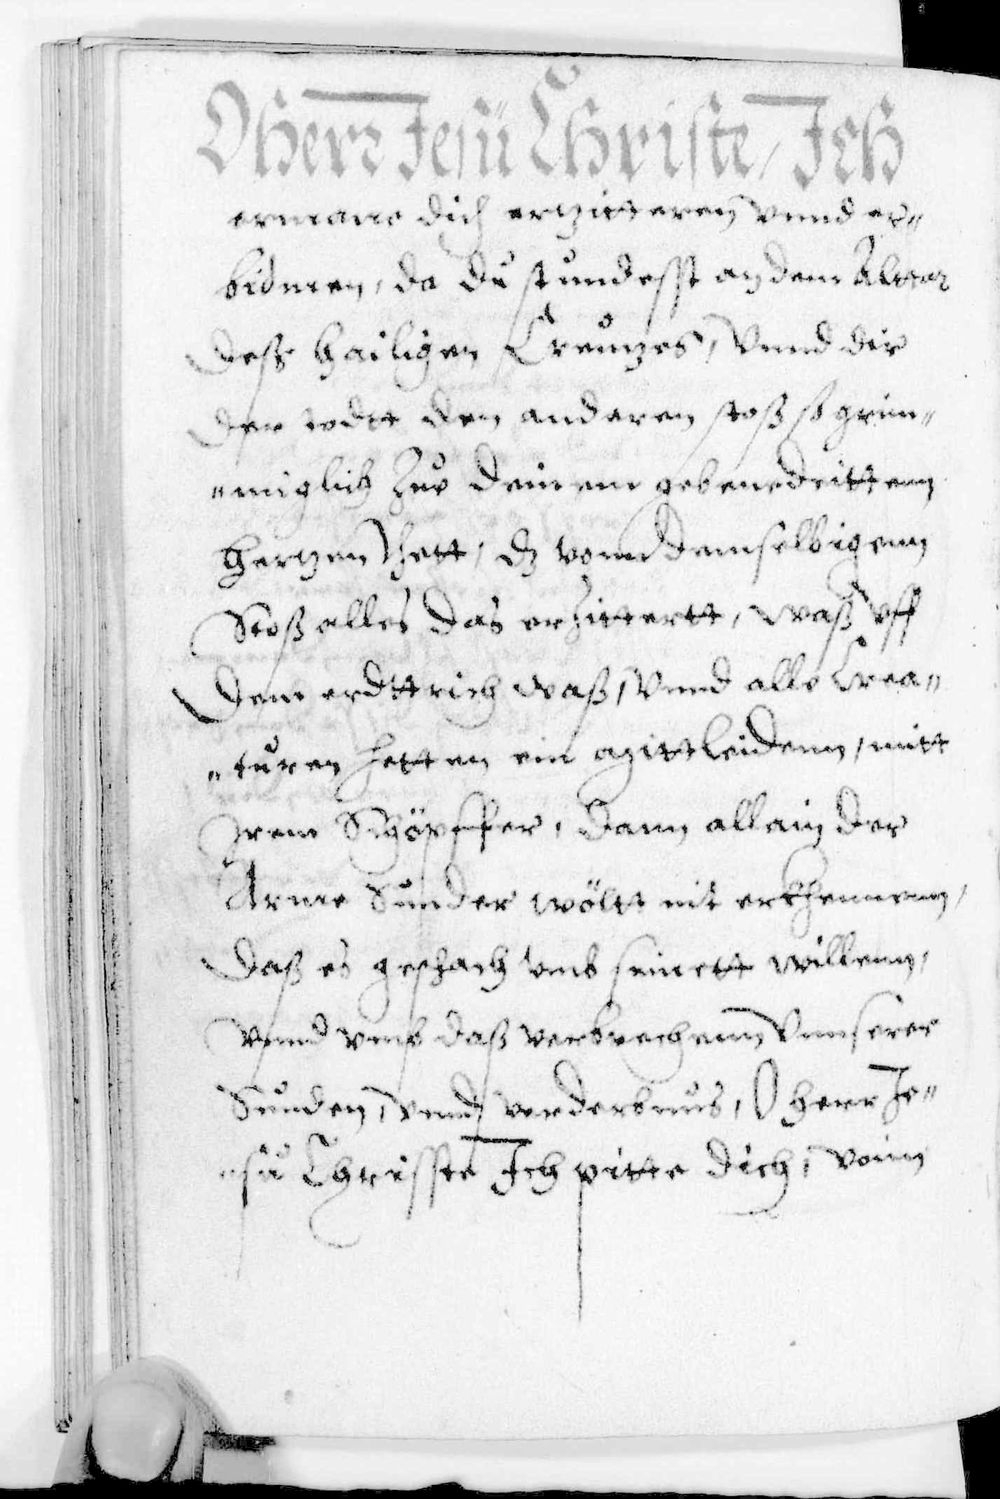 O Herr Jesu Christe, Ich
ermane dich erzitteren vnnd er-
bidmen, da du stundesst an dem Altar
deß hailigen Creutzes, Vnnd dir
der todtt den anderen stoß so grim-
-miglich Zue deinem gebenedeittenn
hertzen thett, dz vonn demselbigenn
Stoß alles das erzittertt, waß vff
dem erdttrich waß, Vnnd alle Crea-
-turen hetten ein mittleidenn, mitt
Irem Schöpffer, dann allain der
Arme Sünder wöltt nit erkhennenn,
daß es geschach vmb seinett willenn,
vnnd vmb daß verbrechenn Vnnserer
Sünden, vnnd verderbnus, O herr Je-
-su Christte Ich pitte dich, vonn